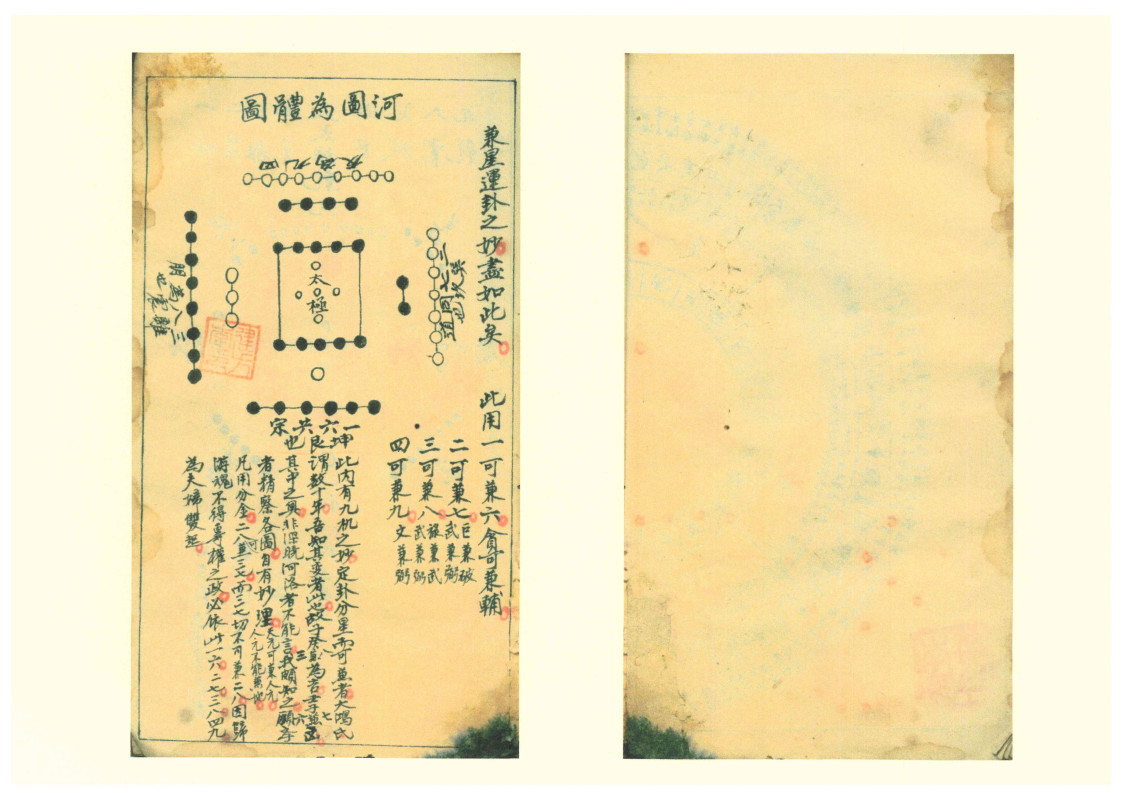 河圖為體圖
兼星運卦之妙盡如此矣
此用一可兼六 貪可兼輔
二可兼七 巨兼破 武兼弼
三可兼八 祿兼武 武兼弼
四可兼九 文兼弼
友為九四
二七同道也
三八為朋也
太極
一六共宗也
坤艮
此內有九机之妙定卦分星而可兼者大鴻氏
謂數十年吾知其
其中之奧非深晓河洛者不能言我頗知之願
者精察各圖自有妙理 天元可兼人元 人元不能兼地
凡用分金二八兼三七而三七切不可兼二八因歸
游魂不得專權之政必依此一六二七三八四九
為夫婦雙起